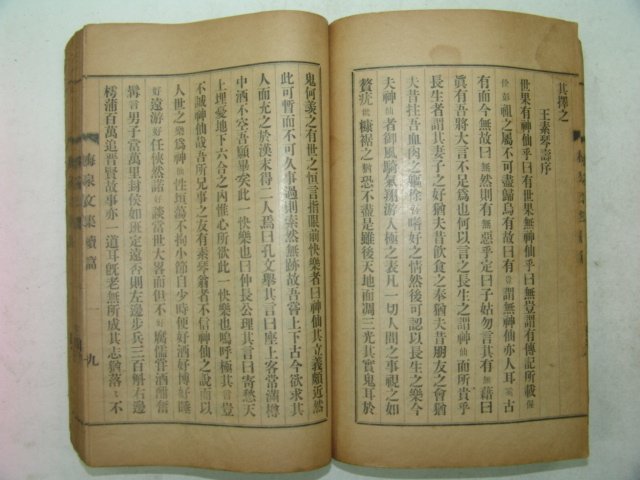 其擇之
王素琴壽序
世果有神仙乎曰有世果無神仙乎曰無豈謂有傳記所載偓
佺彭祖之屬不可盡歸烏有故曰有豈謂無神仙亦人耳古
有而今無故曰無然則有無惡乎定曰子姑勿言其有無藉曰
眞有吾將大言不足爲也何以言之長生之謂仙而所貴乎
長生者謂其妻子之好猶夫昔飮食之奉猶夫昔朋友之會猶
夫昔拄吾血肉之軀徐嗜好之情然後可認以長生之樂今
夫神仙者御風騎氣翔游人極之表凡一切人間之事視之如
贅疣世糠粃之猶恐不盡是雖後天地而凋三光其實鬼耳於
鬼何羨之有世之恒言指眼前快樂者曰神仙其立義頗近然
此可暫而不可久事過則索然無跡故吾嘗上下古今欲求其
人而充之於漢末得二人焉曰孔文擧其言曰座上客常滿樽
中酒不空吾願畢矣此一快樂也曰仲長公理其言曰寄愁天
上埋憂地下六合之內惟心所欲此一快樂也嗚呼極其言豈
不誠神仙哉吾所兄事之友有素琴翁者不信神仙之說而以
人世之樂爲神仙性坦蕩不拘小節自少時便好酒好博好睡
好遠游好任俠然諾好談當世大畧而但不好齷儒嘗酒酣奮
髥言曰當萬里封侯如班定遠否則左邊步兵三百斛右邊
樗蒲百萬追晋賢故事亦一道耳旣老無所成其志猶落落不
梅泉文集續寫
九